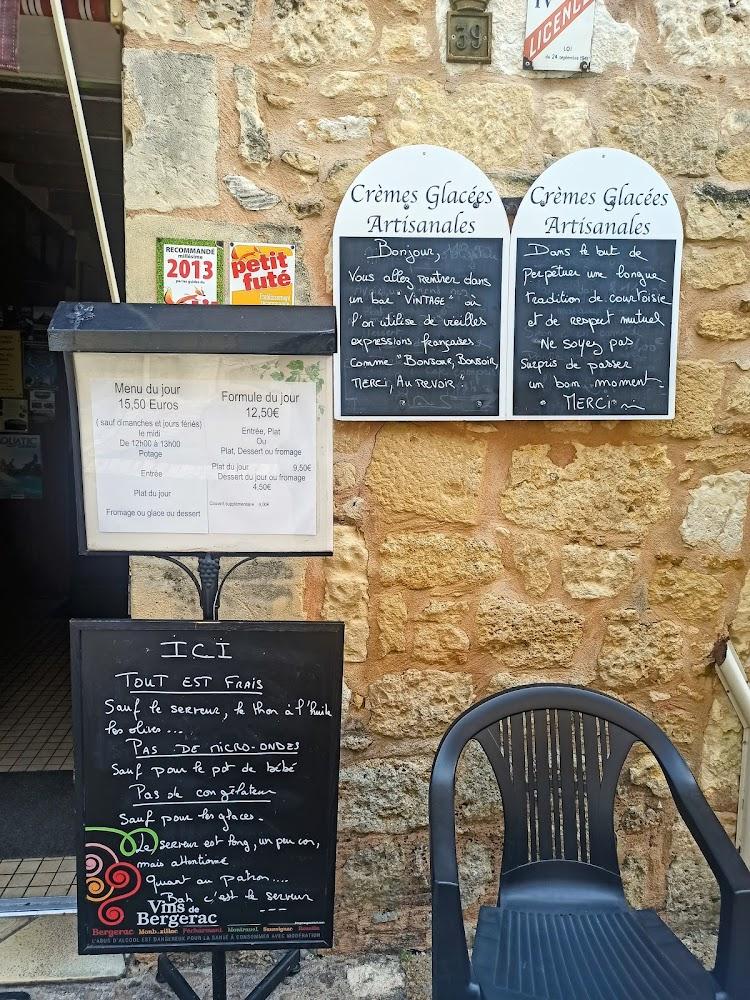 39
IV
LICENCE
LOI
du 24 septembre 1941
RECOMMANDÉ
millésime
2013
par les guides du
petit
futé
petit
futé
Crèmes Glacées
Artisanales
Bonjour,
Vous allez rentrer dans
un bar "VINTAGE" où
l'on utilise de vieilles
expressions françaises
comme "BONJOUR, BONSOIR,
MERCI, AU REVOIR".
Crèmes Glacées
Artisanales
Dans le but de
perpétuer une longue
tradition de courtoisie
et de respect mutuel
Ne soyez pas
surpris de passer
un bon moment.
MERCI
Menu du jour
15,50 Euros
( sauf dimanches et jours fériés)
le midi
De 12h00 à 13h00
Potage
Entrée
Plat du jour
Fromage ou glace ou dessert
Formule du jour
12,50€
Entrée, Plat
Ou
Plat, Dessert ou fromage
Plat du jour 9,50€
Dessert du jour ou fromage
4,50€
ICI
TOUT EST FRAIS
Sauf le serveur, le thon à l'huile
les olives...
PAS DE MICRO-ONDES
Sauf pour le pot de bébé
Pas de congélateur
Sauf pour les glaces.
Le serveur est long, un peu con,
mais attentionné
Quant au patron....
Bah c'est le serveur
---
Vins de
Bergerac
Bergerac Monbazillac Pécharmant Montravel Saussignac Rosette
L'ABUS D'ALCOOL EST DANGEREUX POUR LA SANTÉ À CONSOMMER AVEC MODÉRATION